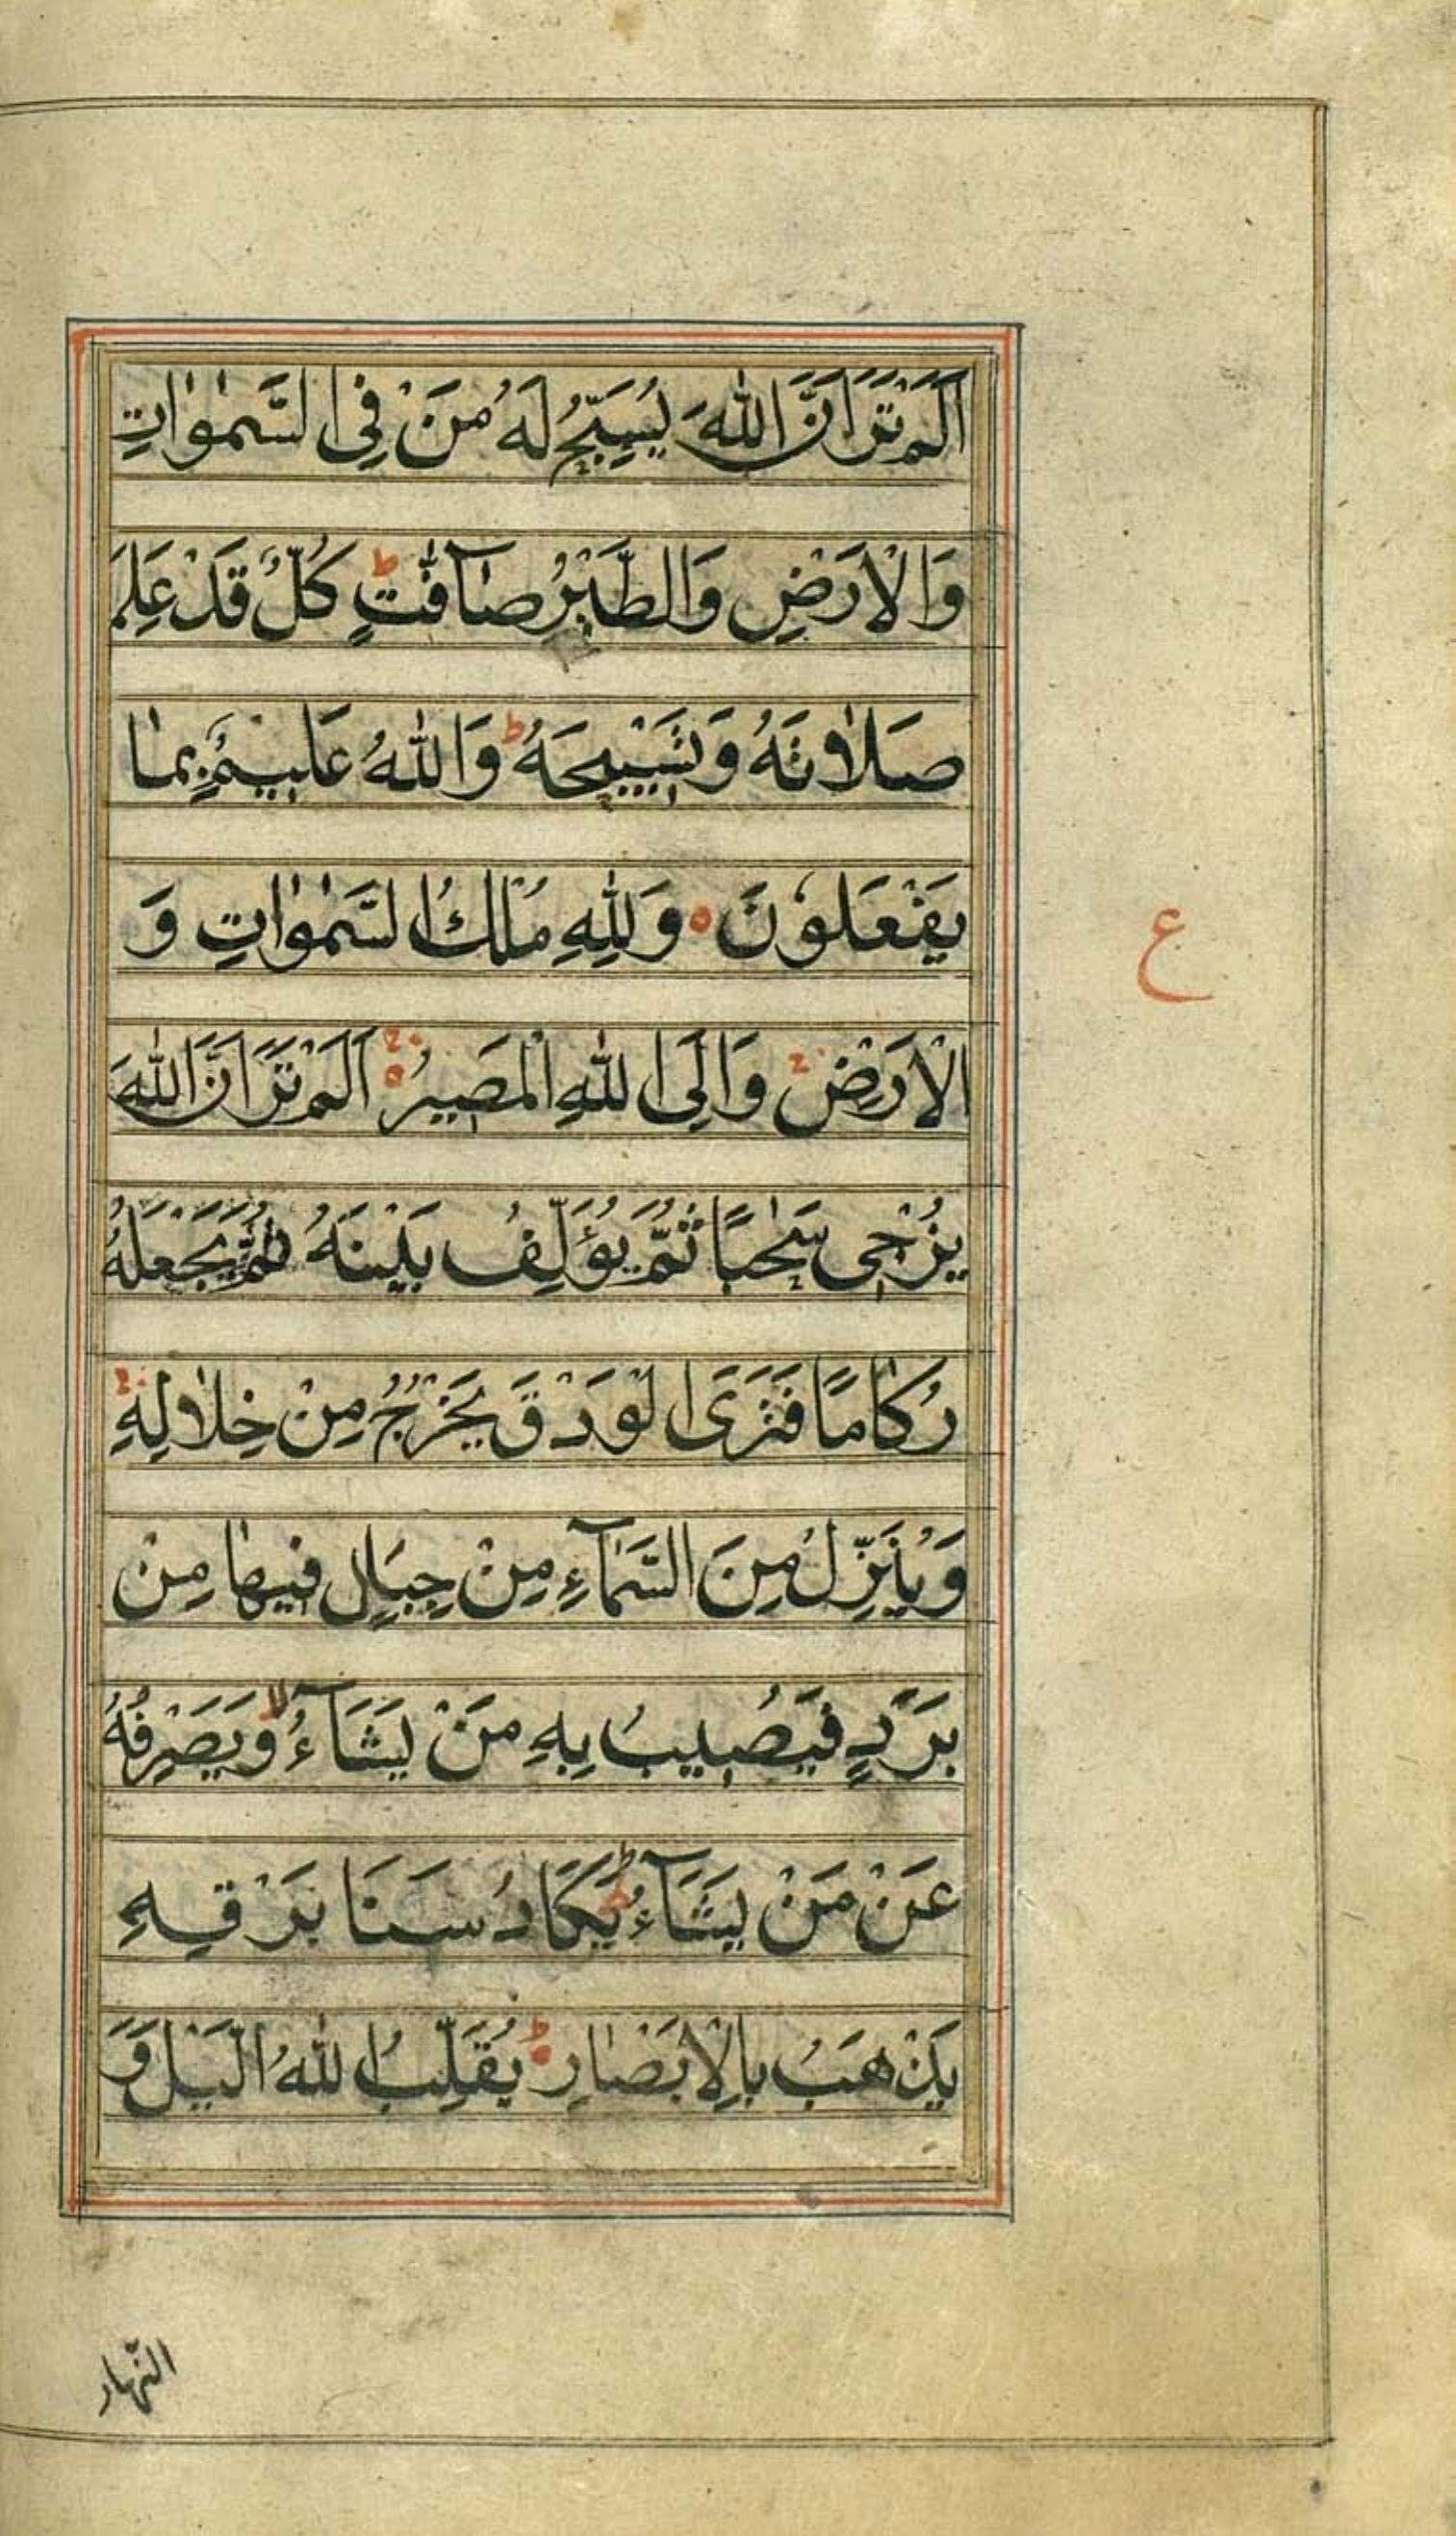 اَلَمْ تَرَ اَنَّ اللّٰهَ يُسَبِّحُ لَهُ مَنْ فِي السَّمٰوٰاتِ
وَالْاَرْضِ وَالطَّيْرُ صٰٓافّٰتٍ ط كُلٌّ قَدْ عَلِمَ
صَلَاتَهُ وَتَسْبِيْحَهُ ط وَاللّٰهُ عَلِيْمٌ بِمٰا
يَفْعَلُوْنَ ه وَلِلّٰهِ مُلْكُ السَّمٰوٰاتِ وَ
ع
الْاَرْضِ وَاِلَى اللّٰهِ الْمَصِيْرُ ه اَلَمْ تَرَ اَنَّ اللّٰهَ
يُزْجِى سَحٰبًا ثُمَّ يُؤَلِّفُ بَيْنَهُ ثُمَّ يَجْعَلُهُ
رُكٰامًا فَتَرَى الْوَدْقَ يَخْرُجُ مِنْ خِلٰالِهِ
وَيُنَزِّلُ مِنَ السَّمَآءِ مِنْ جِبَالٍ فِيهٰا مِنْ
بَرَدٍ فَيُصِيبُ بِهِ مَنْ يَشَآءُ لا وَيَصْرِفُهُ
عَنْ مَنْ يَشَآءُ ط يَكَادُ سَنَا بَرْقِهِ
يَذْهَبُ بِالْاَبْصٰارِ ط يُقَلِّبُ اللّٰهُ الَّيْلَ وَ
النّهار